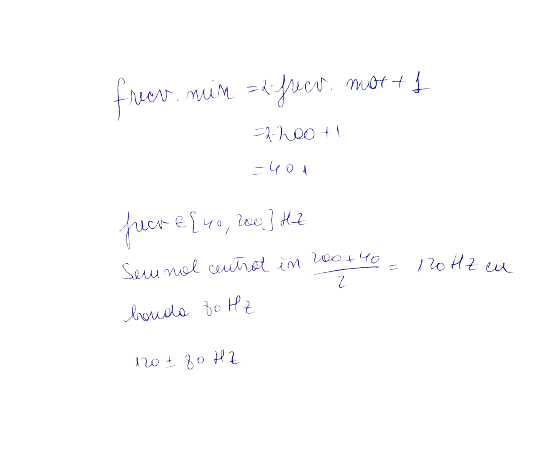 frecv. min = 2·frecv. max + 1
= 2·200 + 1
= 401
frecv ∈ [40, 200] HZ
Semnal centrat in (200+40)/2 = 120 HZ cu
banda 80 HZ
120 ± 80 HZ